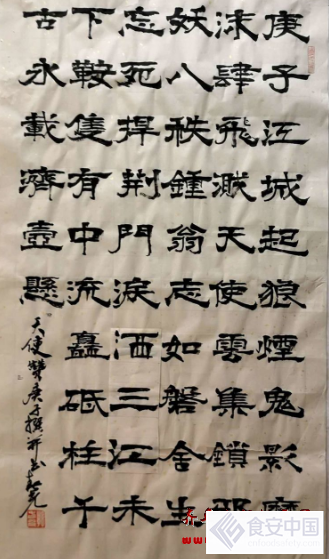 庚子江城起狼煙鬼影
沫肆飛濺天使雲集鎖邪
妖八秩鍾翁志如磐舍生
忘死捍荊門淚洒三江未
下鞍隻有中流矗砥柱千
古永載濟壺懸
天使贊庚子撰并书
食安中国